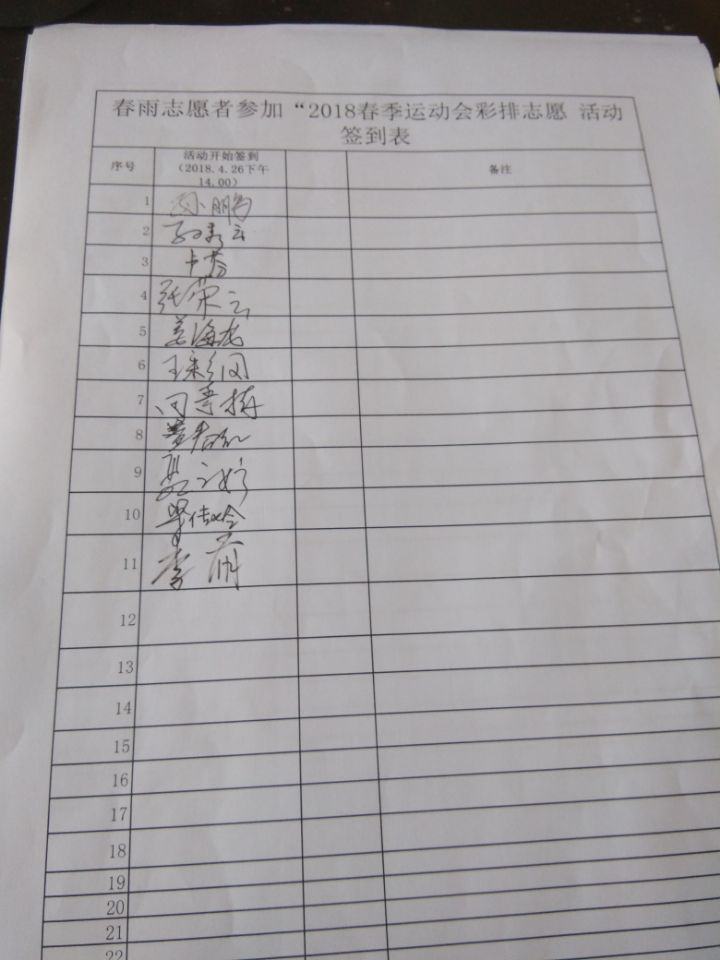 春雨志愿者参加“2018春季运动会彩排志愿 活动
签到表
序号
活动开始签到
(2018.4.26下午
14.00)
备注
1 孙鹏
2
3 卡蓉
4 张荣云
5 姜海龙
6 王彩网
7 闫春梅
8
9
10
11 李萌
12
13
14
15
16
17
18
19
20
21
22